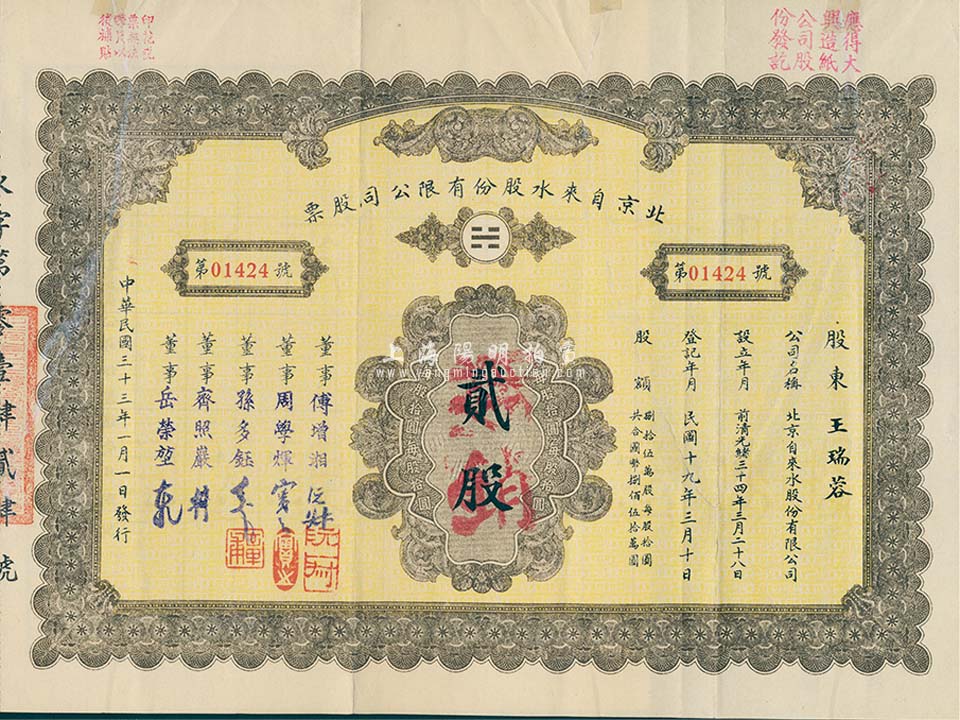 應得大
興造紙
公司股
份發訖
印花稅
票
後補貼
北京自來水股份有限公司股票
第01424號
第01424號
股東 王瑞蓉
公司名稱 北京自來水股份有限公司
設立年月 前清光緒三十四年三月二十八日
登記年月 民國十九年三月十日
股額 捌拾伍萬股每股拾圓
共合國幣捌佰伍拾萬圓
貳股
董事 傅增湘
董事 周學煇
董事 孫多鈺
董事 齊照巖
董事 岳榮堃
中華民國三十三年一月一日發行
字第零壹肆貳肆號
上海陽明拍賣
www.yangmingauction.com